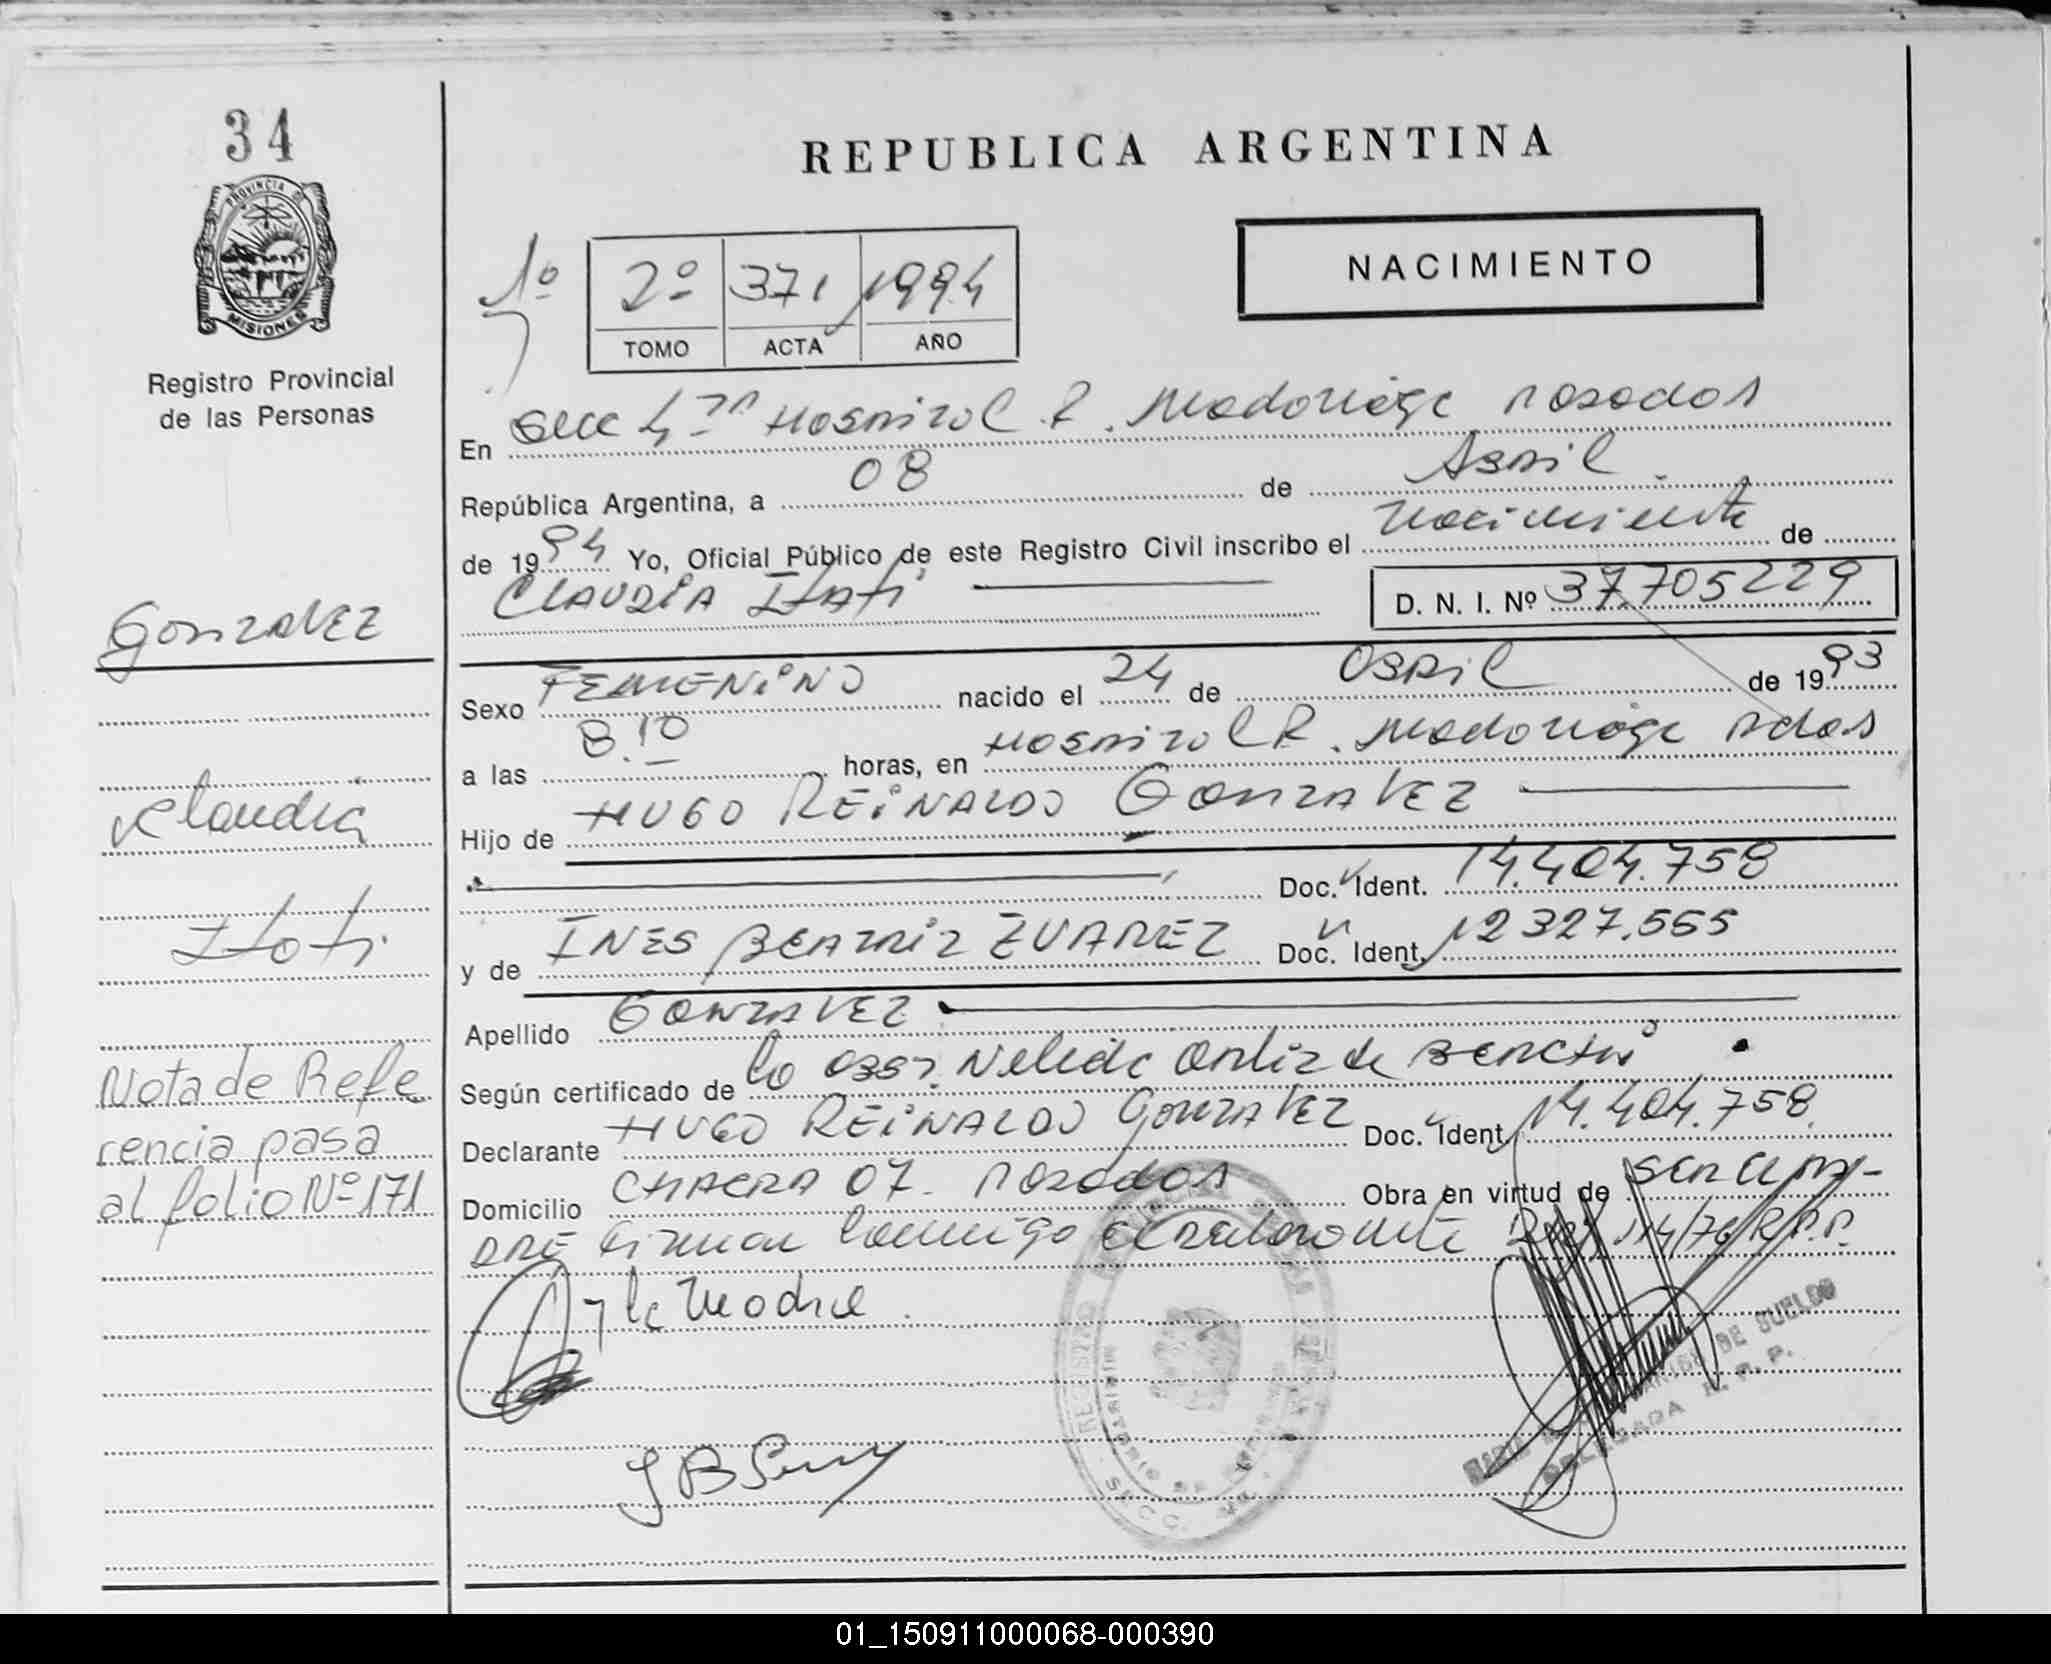 34
REPUBLICA ARGENTINA
PROVINCIA DE
MISIONES
Registro Provincial
de las Personas
1º
2º 371 1994
TOMO ACTA AÑO
NACIMIENTO
En Secc 4ta Hospital R. Madariaga Posadas
República Argentina, a 08 de Abril
de 1994 Yo, Oficial Público de este Registro Civil inscribo el Nacimiento de
CLAUDIA Itatí
D. N. I. Nº 37.705229
Gonzalez
Claudia
Itati
Nota de Refe
rencia pasa
al folio Nº 171
Sexo FEMENINO nacido el 24 de Abril de 1993
a las 8.10 horas, en Hospital R. Madariaga Pdas
Hijo de HUGO REINALDO GONZALEZ
Doc. Ident. 14.404.758
y de INES BEATRIZ ZUAREZ Doc. Ident. 12327.565
Apellido GONZALEZ
Según certificado de la Obst. Nelida Ortiz de
Declarante HUGO REINALDO GONZALEZ Doc. Ident. 14.404.758
Domicilio CHACRA 07. Posadas Obra en virtud de ser el pa-
DRE Firman conmigo el declarante 114/76 R.P.P.
y la Madre.
REGISTRO PROVINCIAL DE LAS PERSONAS
SECC.
DE SUELDO
DELEGADA R. P. P.
01_150911000068-000390